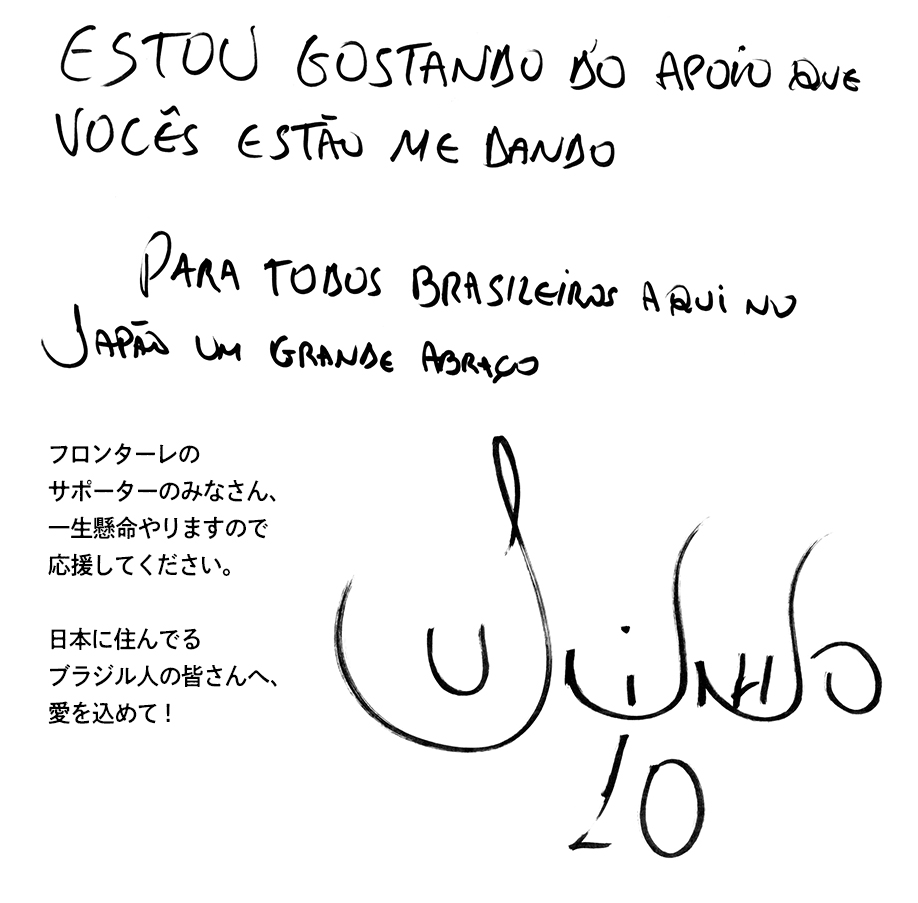 ESTOU GOSTANDO DO APOIO QUE
VOCÊS ESTÃO ME DANDO
PARA TODOS BRASILEIROS AQUI NO
JAPÃO UM GRANDE ABRAÇO
フロンターレの
サポーターのみなさん、
一生懸命やりますので
応援してください。
日本に住んでる
ブラジル人の皆さんへ、
愛を込めて！
JUNINHO
10